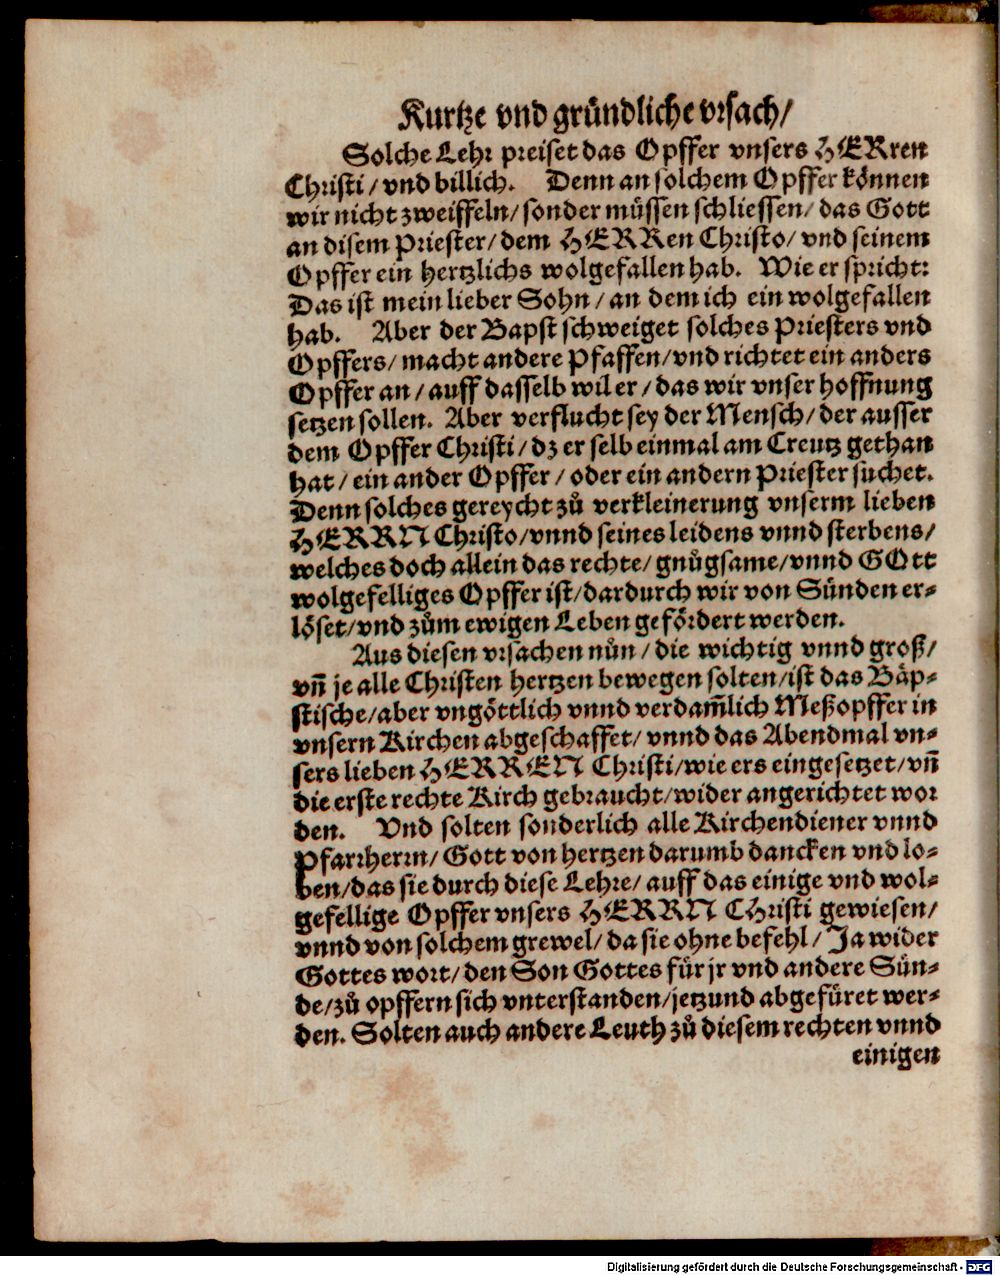 Kurtze vnd gründliche vrsach/
Solche Lehr preiset das Opffer vnsers HERren
Christi/ vnd billich. Denn an solchem Opffer können
wir nicht zweiffeln/ sonder müssen schliessen/ das Gott
an disem Priester/ dem HERRen Christo/ vnd seinem
Opffer ein hertzlichs wolgefallen hab. Wie er spricht:
Das ist mein lieber Sohn/ an dem ich ein wolgefallen
hab. Aber der Bapst schweiget solches Priesters vnd
Opffers/ macht andere Pfaffen/ vnd richtet ein anders
Opffer an/ auff dasselb wil er/ das wir vnser hoffnung
setzen sollen. Aber verflucht sey der Mensch/ der ausser
dem Opffer Christi/ dz er selb einmal am Creutz gethan
hat/ ein ander Opffer/ oder ein andern Priester suchet.
Denn solches gereycht zů verkleinerung vnserm lieben
HERRN Christo/ vnnd seines leidens vnnd sterbens/
welches doch allein das rechte/ gnůgsame/ vnnd GOtt
wolgefelliges Opffer ist/ dardurch wir von Sünden er-
löset/ vnd zům ewigen Leben gefördert werden.
Aus diesen vrsachen nůn/ die wichtig vnnd groß/
vñ je alle Christen hertzen bewegen solten/ ist das Bäp-
stische/ aber vngöttlich vnnd verdam̃lich Meßopffer in
vnsern Kirchen abgeschaffet/ vnnd das Abendmal vn-
sers lieben HERREN Christi/ wie ers eingesetzet/ vñ
die erste rechte Kirch gebraucht/ wider angerichtet wor
den. Vnd solten sonderlich alle Kirchendiener vnnd
Pfarrherrn/ Gott von hertzen darumb dancken vnd lo-
ben/ das sie durch diese Lehre/ auff das einige vnd wol-
gefellige Opffer vnsers HERRN CHristi gewiesen/
vnnd von solchem grewel/ da sie ohne befehl/ Ja wider
Gottes wort/ den Son Gottes für jr vnd andere Sün-
de/ zů opffern sich vnterstanden/ jetzund abgefüret wer-
den. Solten auch andere Leuth zů diesem rechten vnnd
einigen
Digitalisierung gefördert durch die Deutsche Forschungsgemeinschaft - DFG